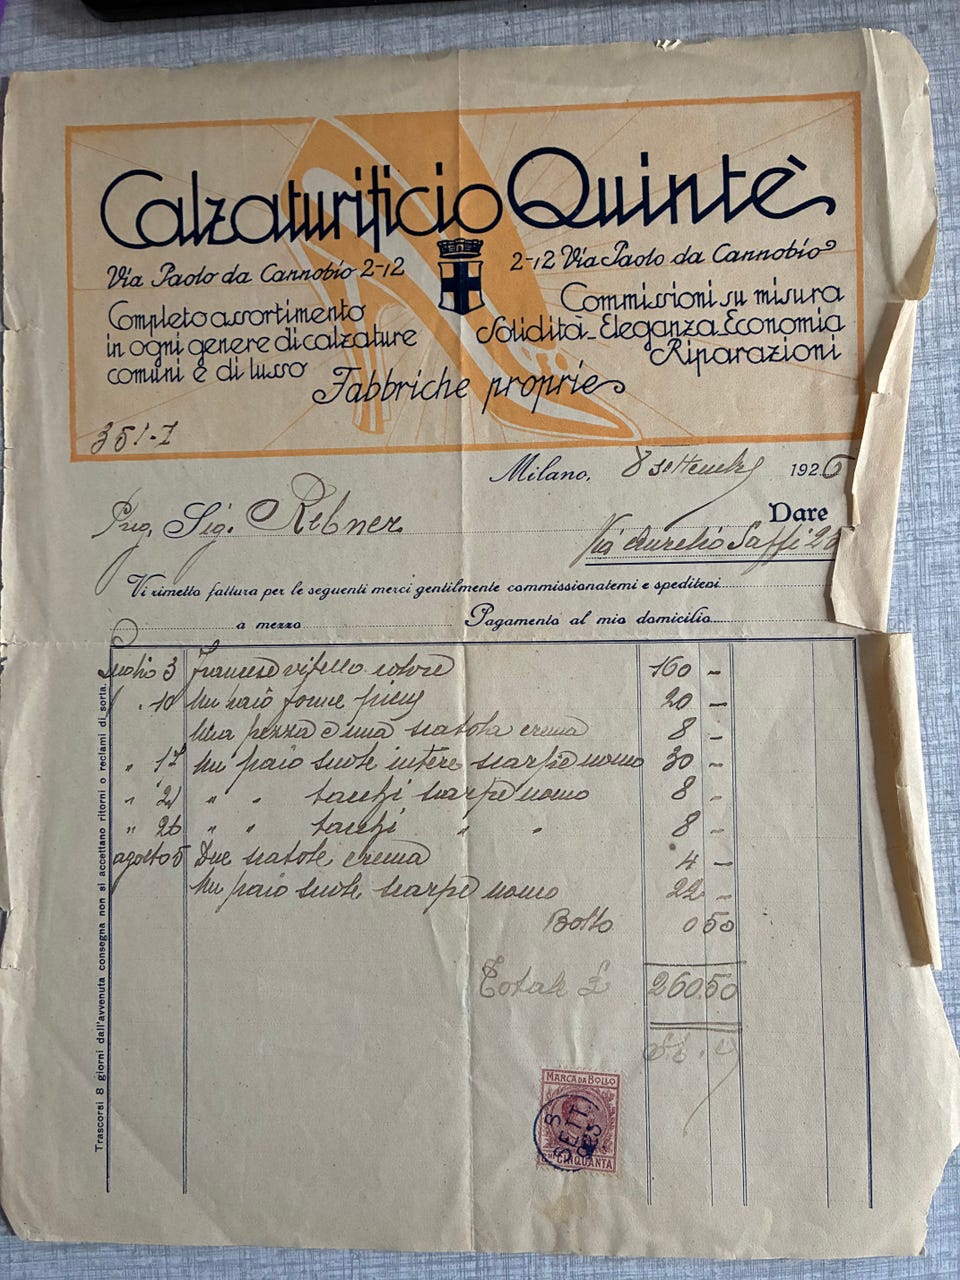 Calzaturificio Quintè
Via Paolo da Cannobio 2-12
2-12 Via Paolo da Cannobio
Completo assortimento
in ogni genere di calzature
comuni e di lusso
Commissioni su misura
Solidità - Eleganza - Economia
Riparazioni
Fabbriche proprie
351-1
Milano, 8 settembre 192
Sig. Rebner
Dare
Via Aurelio Saffi
Vi rimetto fattura per le seguenti merci gentilmente commissionatemi e speditevi
a mezzo Pagamento al mio domicilio
luglio 3 vitello colore 160 –
" 10 Un paio forme 20 –
Una pezza e una scatola crema 8 –
" 17 Un paio suole intere scarpe uomo 30 –
" 21 " " tacchi scarpe uomo 8 –
" 26 " " tacchi " " 8 –
agosto 5 Due scatole crema 4 –
Un paio suole scarpe uomo 22 –
Bollo 0 50
Totale £ 260.50
MARCA DA BOLLO
8 SETT.
CINQUANTA
Trascorsi 8 giorni dall'avvenuta consegna non si accettano ritorni o reclami di sorta.